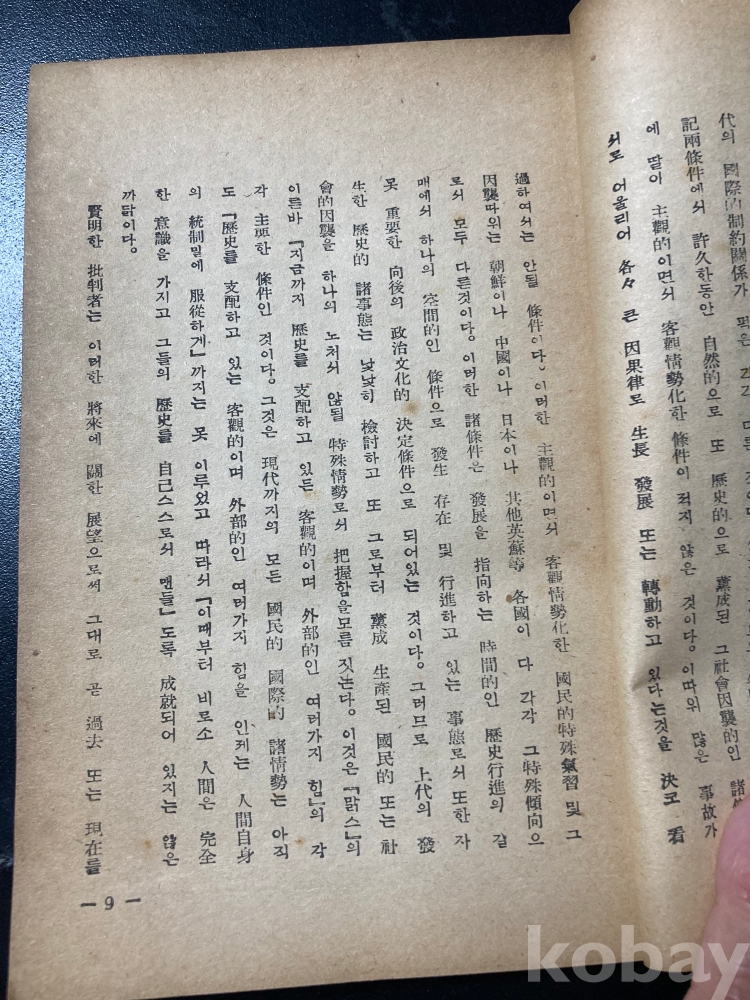 代의 國際的 制約關係가
記兩條件에서 許久한동안 自然的으로 또 歷史的으로 薰成된 그 社會因襲的인 諸
에 딸아 主觀的이면서 客觀情勢化한 條件이 적지 않은 것이다. 이따위 많은 事故가
서로 어울리어 各々 큰 因果律로 生長 發展 또는 轉動하고 있다는것을 決코 看
過하여서는 안될 條件이다. 이러한 主觀的이면서 客觀情勢化한 國民的特殊氣習 및 그
因襲따위는 朝鮮이나 中國이나 日本이나 其他英蘇等 各國이 다 각각 그特殊傾向으
로서 모두 다른것이다. 이러한 諸條件은 發展을 指向하는 時間的인 歷史行進의 갈
매에서 하나의 空間的인 條件으로 發生 存在 및 行進하고 있는 事態로서 또한 자
못 重要한 向後의 政治文化的 決定條件으로 되어있는 것이다. 그러므로 上代의 發
生한 歷史的 諸事態는 낮낮히 檢討하고 또 그로부터 薰成 生產된 國民的 또는 社
會的因襲을 하나의 노처서 않될 特殊情勢로서 把握함을모름 짓는다. 이것은 『맑스』의
이른바 『지금까지 歷史를 支配하고 있든 客觀的이며 外部的인 여러가지 힘』의 각
각 主要한 條件인 것이다. 그것은 現代까지의 모든 國民的 國際的 諸情勢는 아직
도 『歷史를 支配하고 있는 客觀的이며 外部的인 여러가지 힘을 인제는 人間自身
의 統制밑에 服從하게』까지는 못 이루었고 따라서 『이때부터 비로소 人間은 完全
한 意識을 가지고 그들의 歷史를 自己스스로서 맨들』도록 成就되어 있지는 않은
까닭이다.
賢明한 批判者는 이러한 將來에 關한 展望으로써 그대로 곧 過去 또는 現在를
— 9 —
kobay